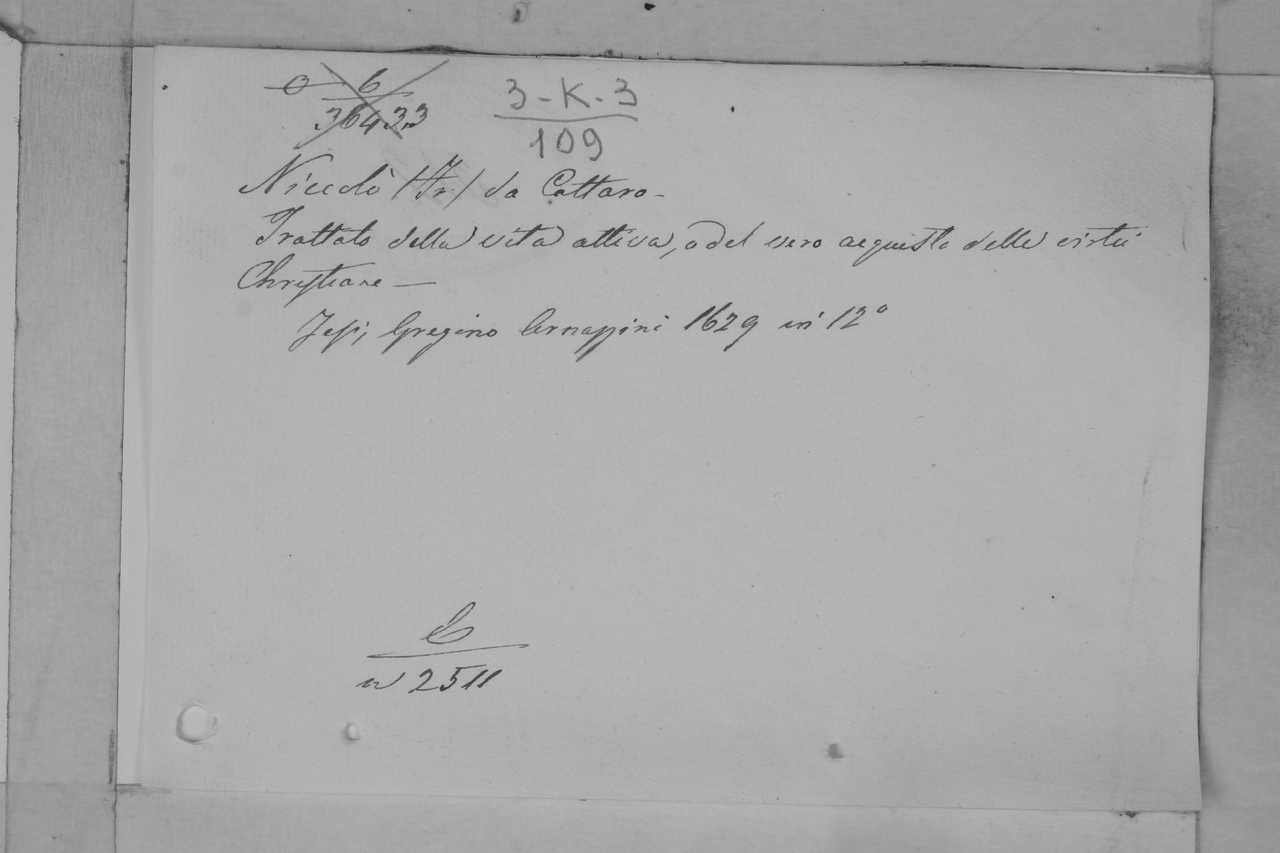 6
36433
3-K-3
109
Niccolò /Fr./ da Cattaro -
Trattato della vita attiva, o del vero acquisto delle virtù
Christiane -
Jesi, Gregorio Arnazzini 1629 in 12°
n 2511